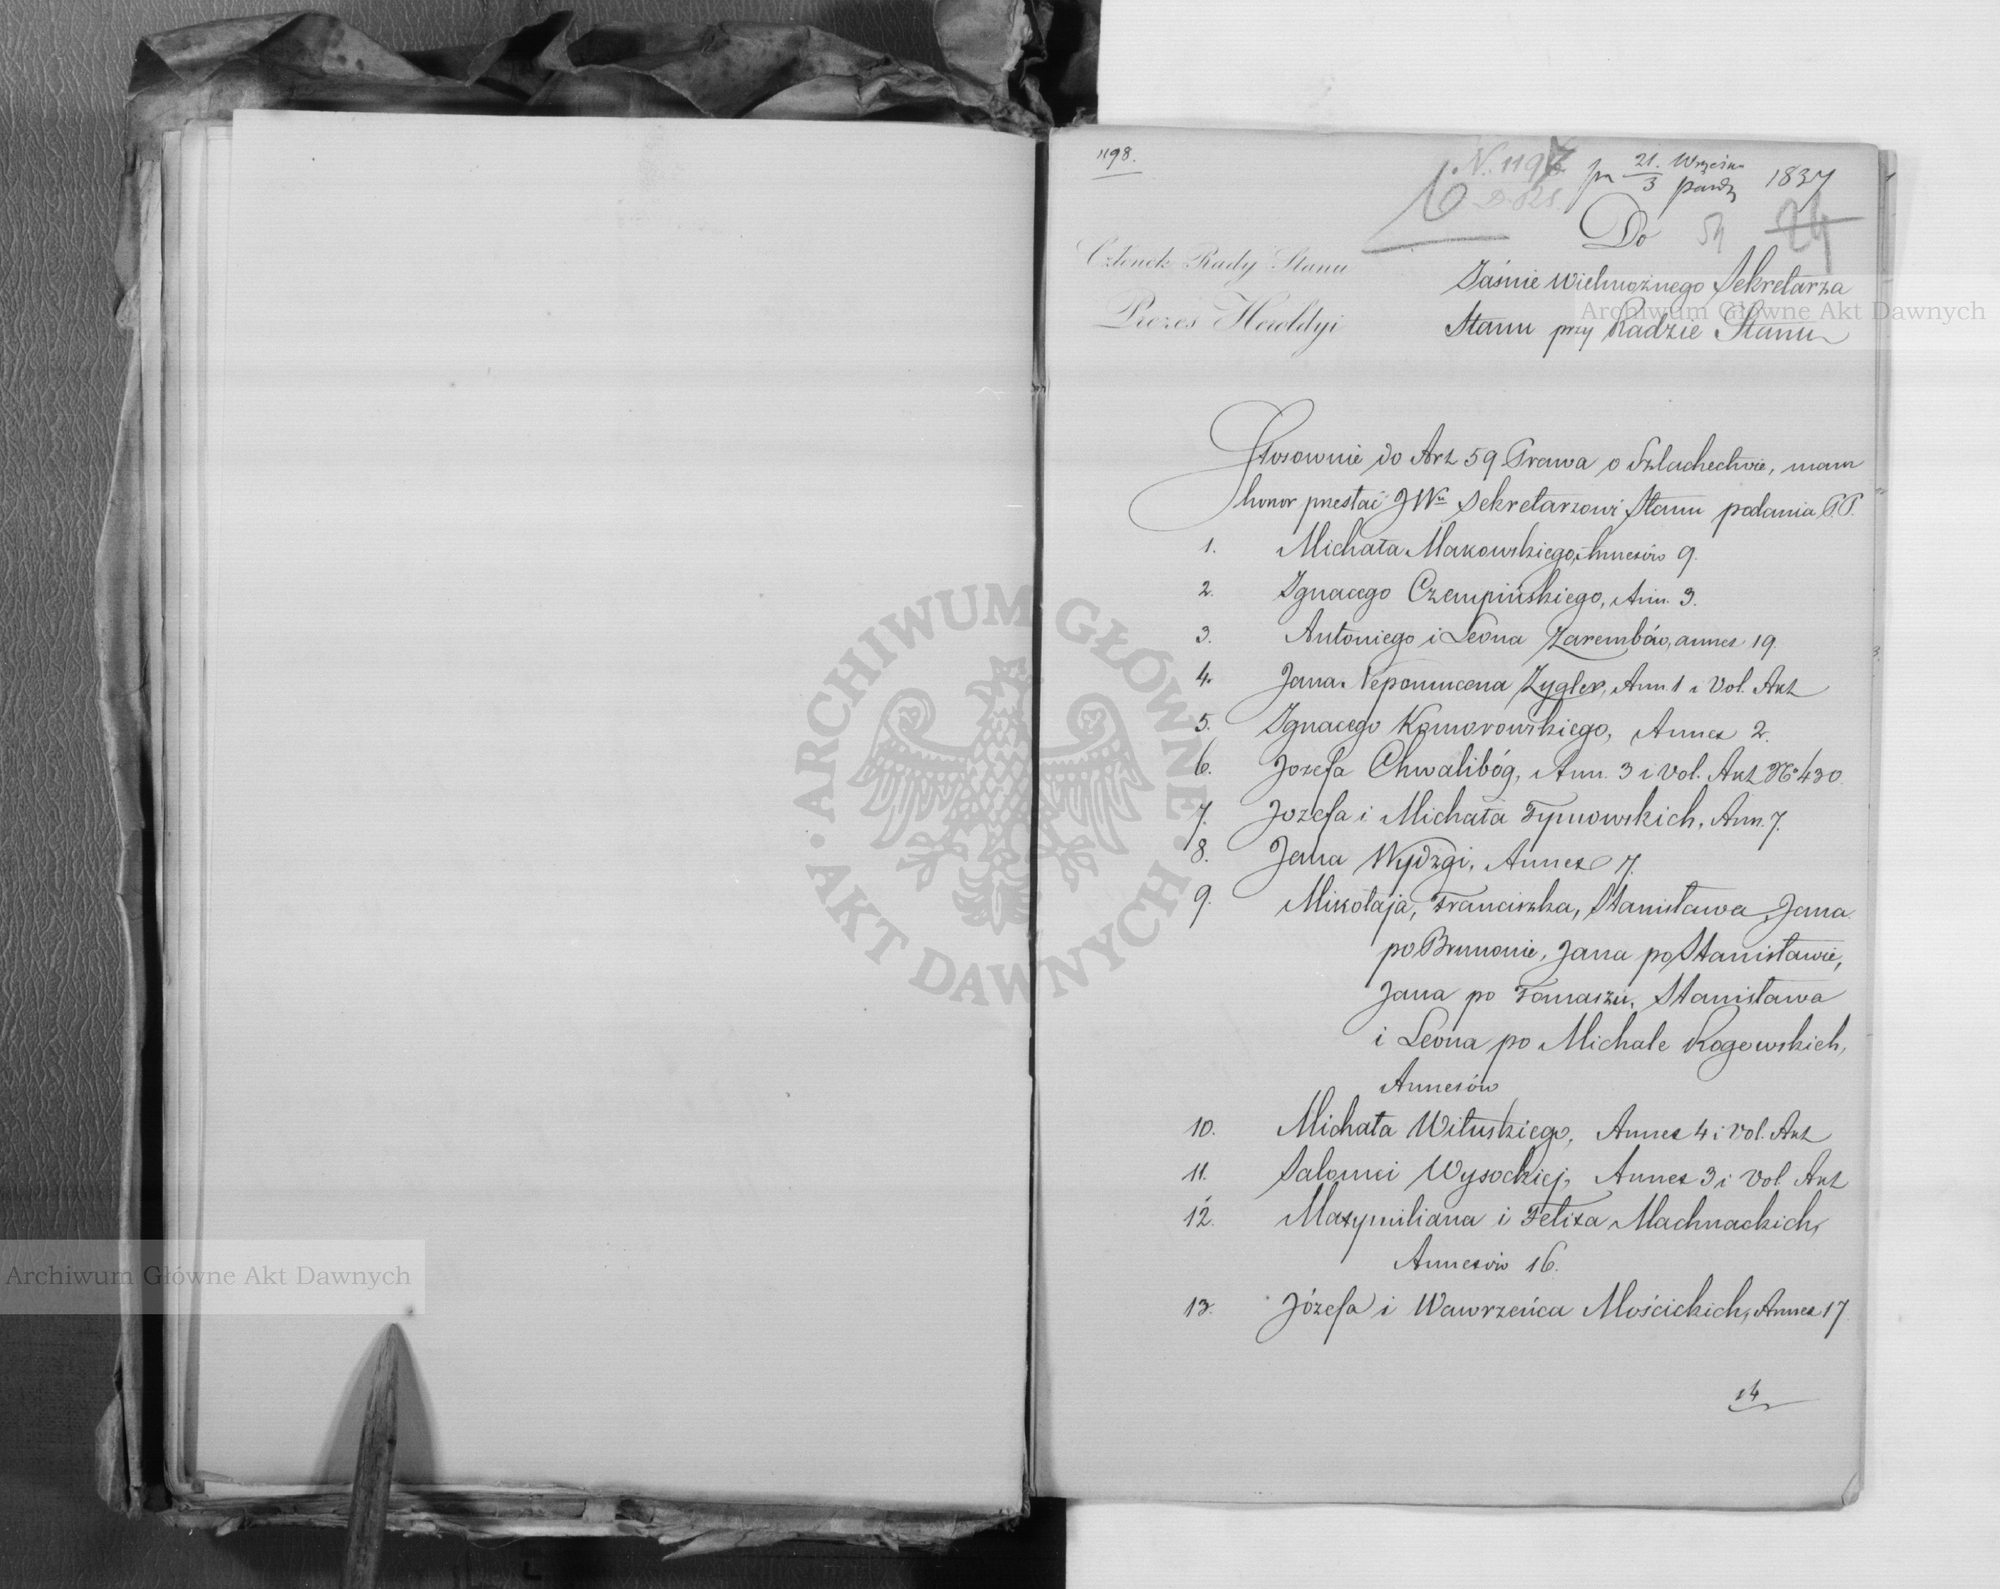 1198.
N. 1197
pr 21. Września
3 Paźdz 1837
D. 621
Do 59 24
Członek Rady Stanu
Prezes Heroldyi
Jaśnie Wielmożnego Sekretarza
Stanu przy Radzie Stanu
Stosownie do Art 59 Prawa o Szlachectwie, mam
honor przesłać JWu Sekretarzowi Stanu podania P.P.
1. Michała Makowskiego, i Annexów 9.
2. Ignacego Czempińskiego, Ann. 3.
3. Antoniego i Leona Zarembów, annex 19
4. Jana Nepomucena Zygler, Ann. 1 i Vol. Akt
5. Ignacego Komorowskiego, Annex 2.
6. Jozefa Chwalibóg, Ann. 3 i Vol. Akt No 430.
7. Jozefa i Michała Tymowskich, Ann. 7.
8. Jana Wydzgi, Annex 7.
9. Mikołaja, Franciszka, Stanisława, Jana
po Brunonie, Jana po Stanisławie,
Jana po Tomaszu, Stanisława
i Leona po Michale Rogowskich,
Annexów
10. Michała Wituskiego, Annex 4 i Vol. Akt
11. Salomei Wysockiej, Annex 3 i Vol. Akt
12. Maxymiliana i Felixa Machnackich,
Annexów 16.
13. Józefa i Wawrzeńca Mościckich, Annex 17
14
Archiwum Główne Akt Dawnych
ARCHIWUM GŁÓWNE
AKT DAWNYCH
Archiwum Główne Akt Dawnych